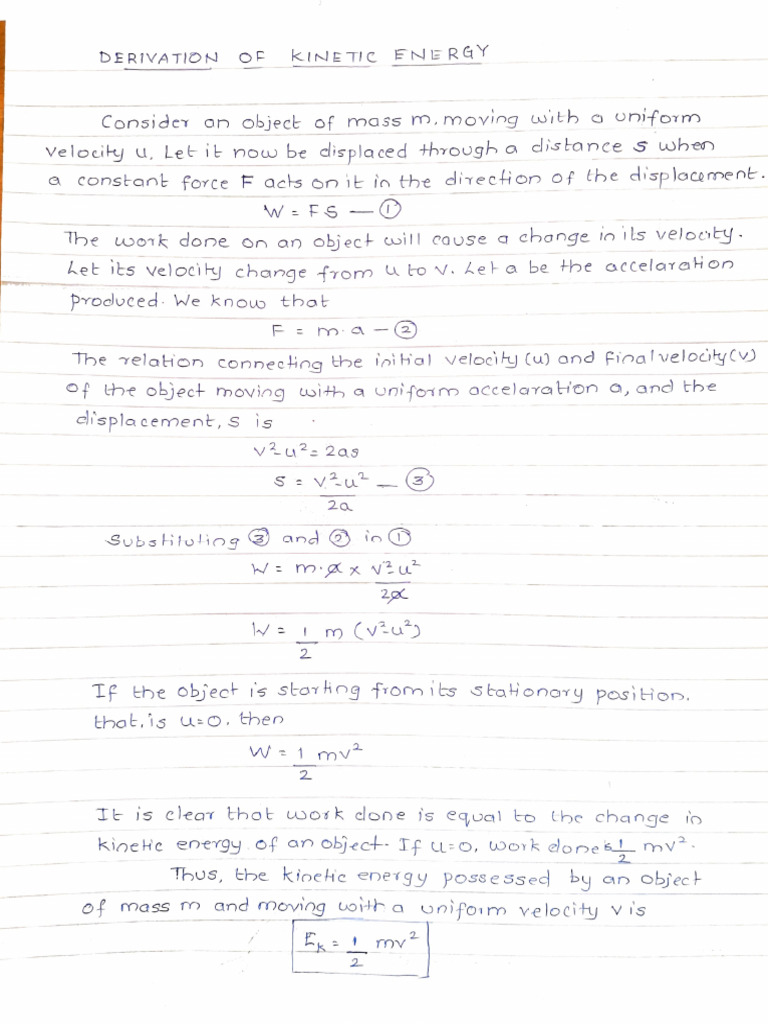 DERIVATION OF KINETIC ENERGY
Consider an object of mass m, moving with a uniform
velocity u. Let it now be displaced through a distance s when
a constant force F acts on it in the direction of the displacement.
W = FS — ①
The work done on an object will cause a change in its velocity.
Let its velocity change from u to v. Let a be the accelaration
produced. We know that
F = m.a — ②
The relation connecting the initial velocity (u) and final velocity (v)
of the object moving with a uniform accelaration a, and the
displacement, s is
v²-u² = 2as
s = v²-u² — ③
2a
Substituting ③ and ② in ①
W = m.a x v²-u²
2a
W = 1 m (v²-u²)
2
If the object is starting from its stationary position.
that, is u=0, then
W = 1 mv²
2
It is clear that work done is equal to the change in
kinetic energy of an object. If u=0, work done is 1 mv².
2
Thus, the kinetic energy possessed by an object
of mass m and moving with a uniform velocity v is
Eₖ = 1 mv²
2